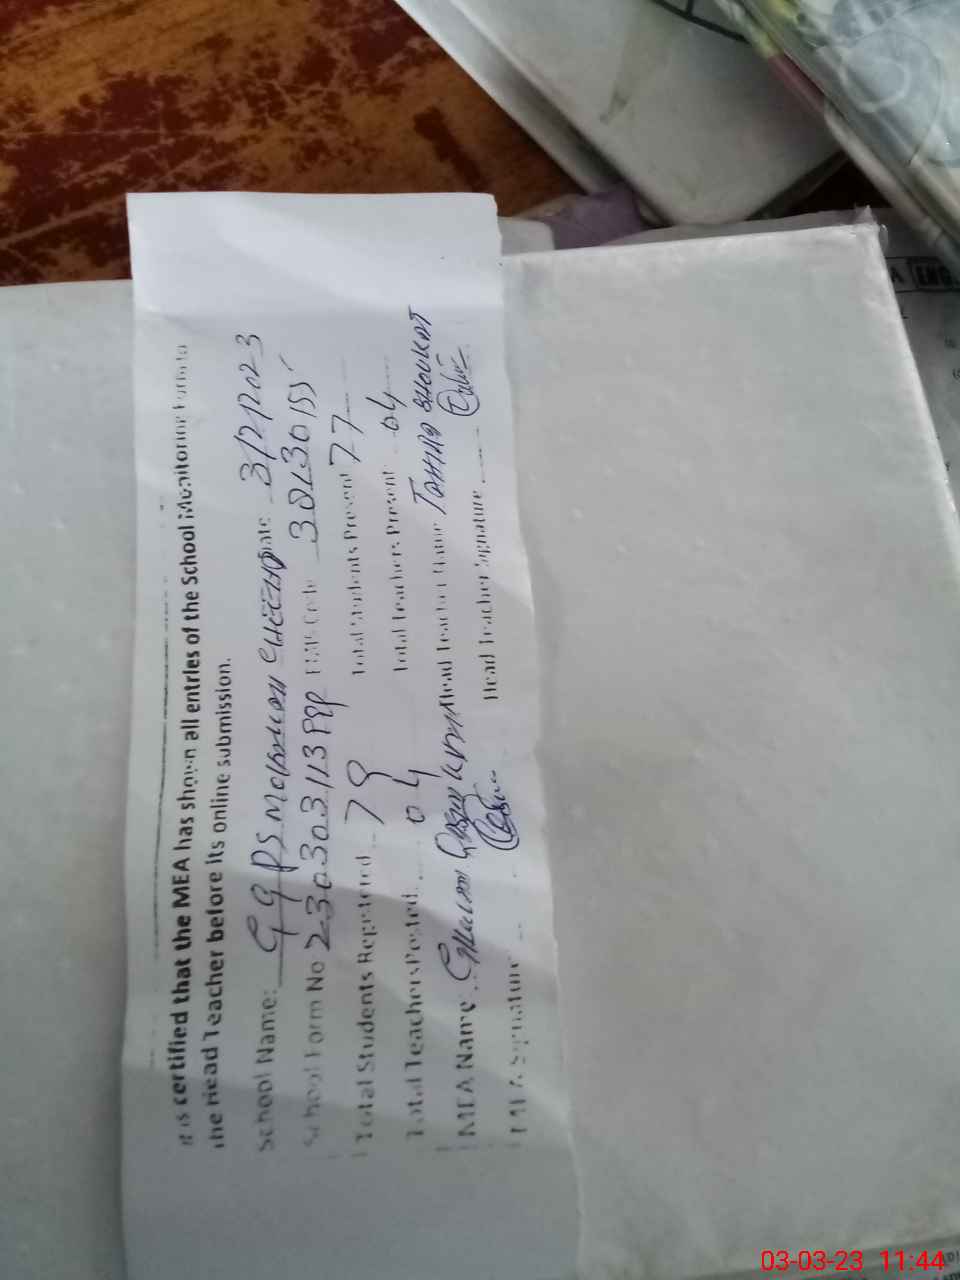 It is certified that the MEA has shown all entries of the School Monitoring Form to
the Head Teacher before its online submission.
School Name: GGPS CHEENA Date 3/2/2023
School Form No EMIS Code 30130155
Total Students Registered 78 Total Students Present 77
Total Teachers Posted 04 Total Teachers Present 04
MEA Name Ghulam Head Teacher Name TAHIRA SHOUKAT
MEA Signature Head Teacher Signature
A ENG
03-03-23 11:44